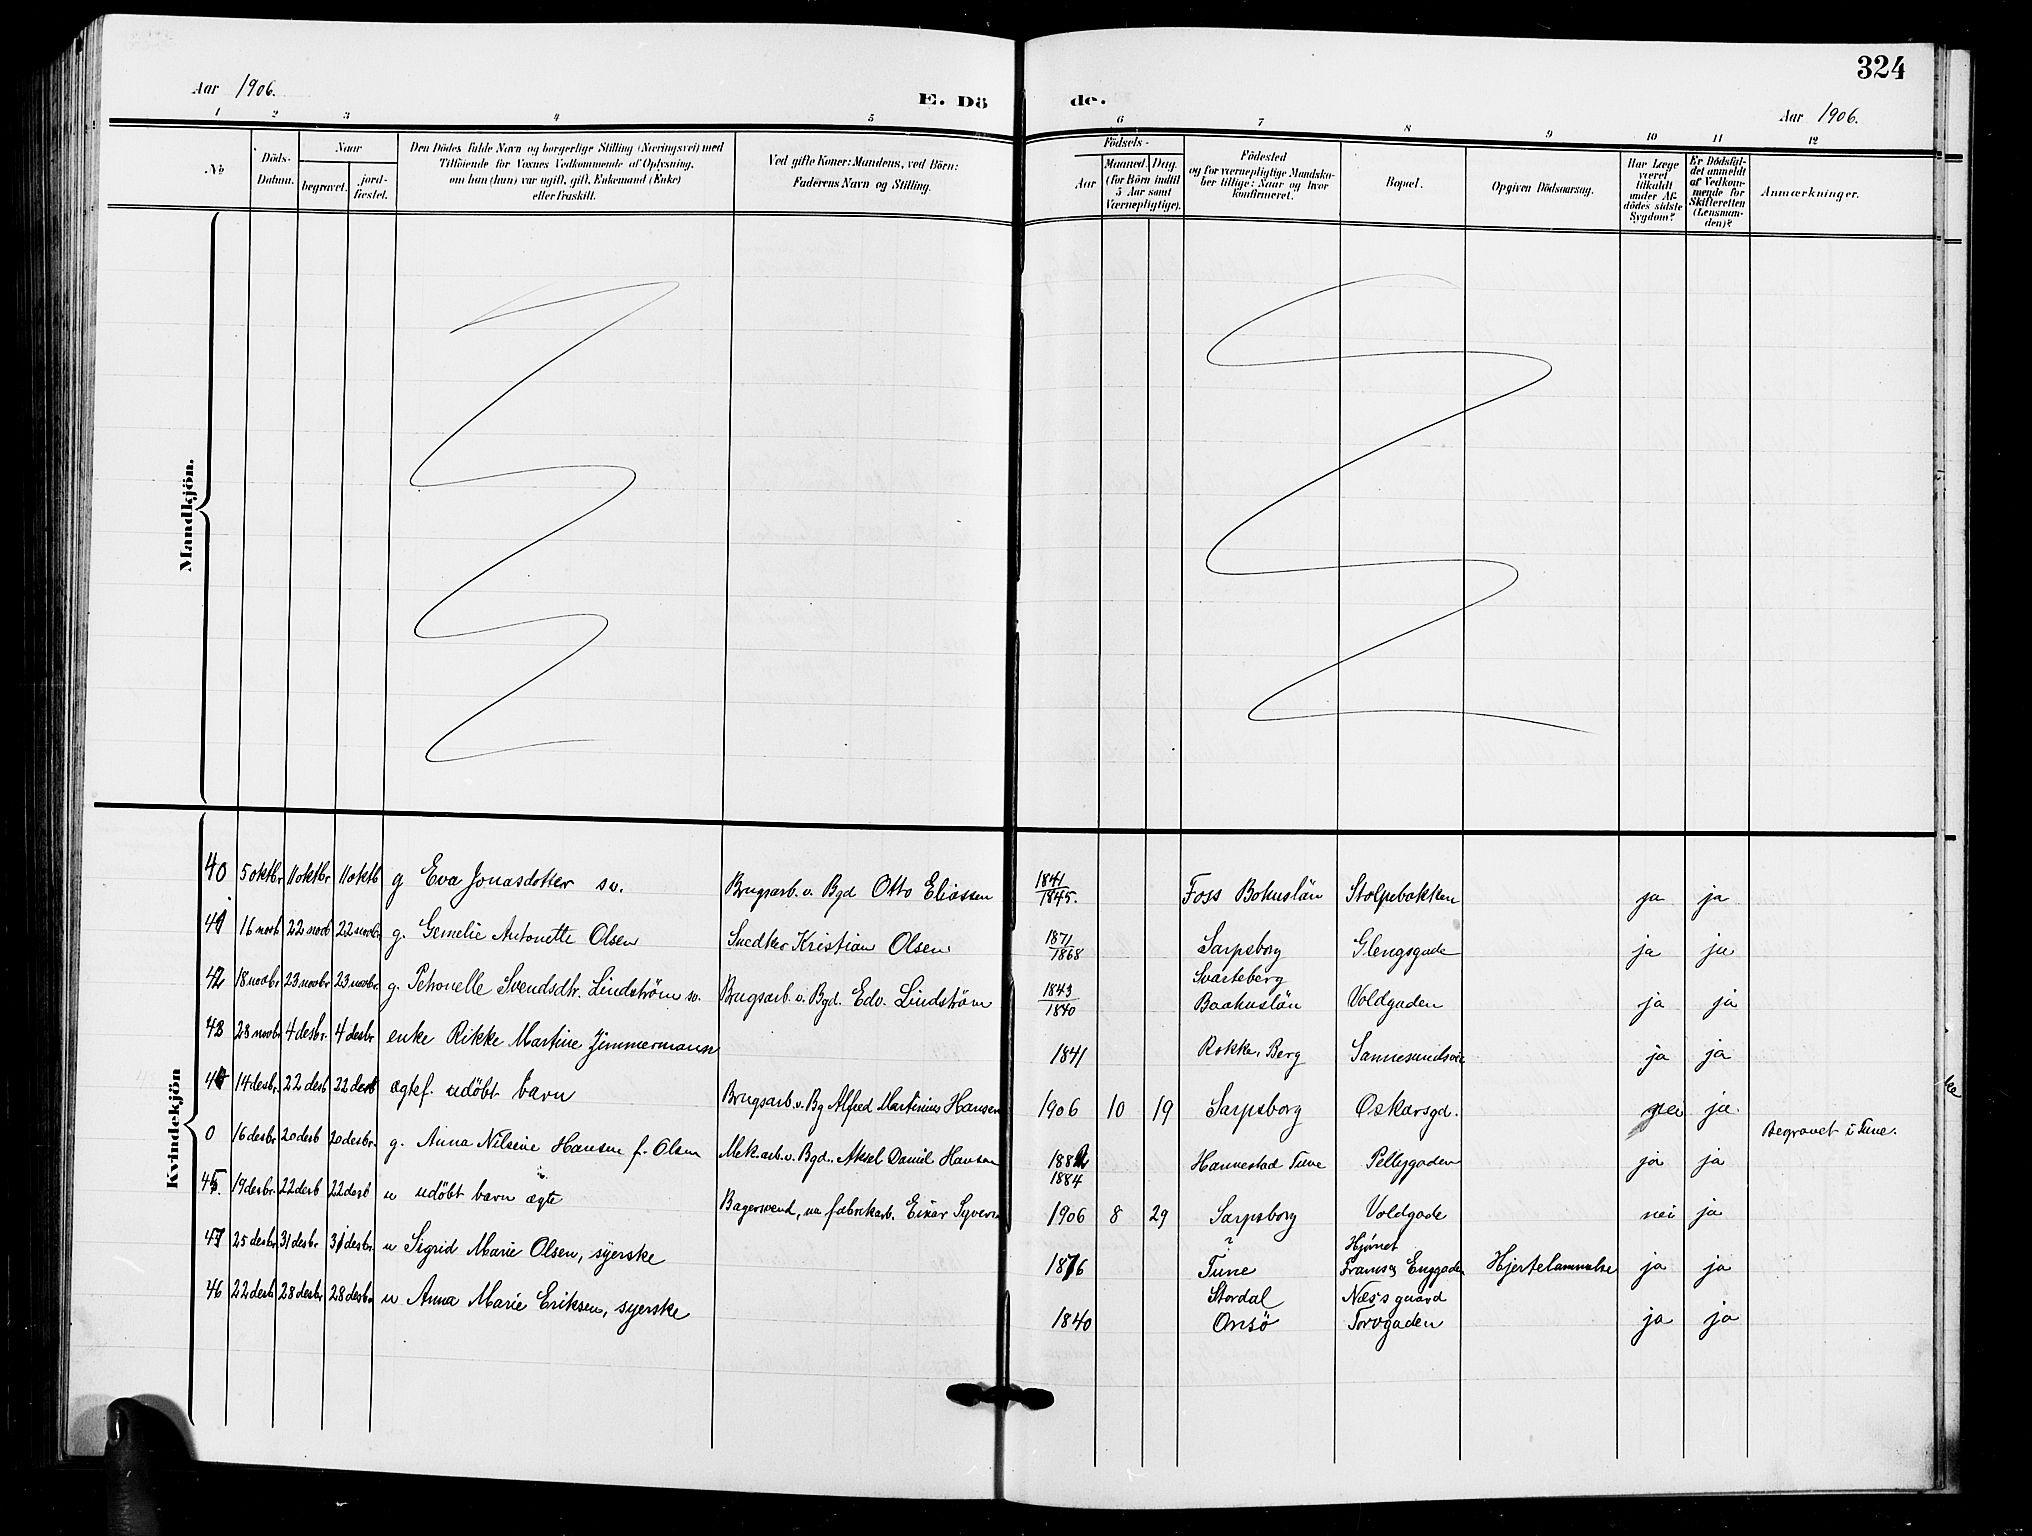 324
Aar 1906.
E. Dö de.
Aar 1906.
1 2 3 4 5 6 7 8 9 10 11 12
No
Döds-
Datum.
Naar
begravet.
jord-
fæstet.
Den Dödes fulde Navn og borgerlige Stilling (Næringsvei) med
Tilföiende for Voxnes Vedkommende af Oplysning,
om han (hun) var ugift, gift, Enkemand (Enke)
eller fraskilt.
Ved gifte Koner: Mandens, ved Börn:
Faderens Navn og Stilling.
Födsels-
Aar
Maaned. Dag.
(for Börn indtil
5 Aar samt
Værnepligtige).
Födested
og for værnepligtige Mandska-
ber tillige: Naar og hvor
konfirmeret.
Bopæl.
Opgiven Dödsaarsag.
Har Læge
været
tilkaldt
under Af-
dödes sidste
Sygdom?
Er Dödsfal-
det anmeldt
af Vedkom-
mende for
Skifteretten
(Lensman-
den)?
Anmærkninger.
Mandkjön.
Kvindekjön
40 5 oktbr 11 oktbr 11 oktb g Eva Jonasdotter sv. Brugsarb. v. Bgd Otto Eliassen 1841/1845. Foss Bohuslän Stolpebakken ja ja
41 16 novb 22 novb 22 novbr. g. Gemelie Antonette Olsen Snedker Kristian Olsen 1871/1868 Sarpsborg Glengsgade ja ja
42 18 novbr 23 novbr 23 novbr. g. Petronelle Svendsdtr. Lindström sv. Brugsarb. v. Bgd. Edv. Lindström 1843/1840 Svarteberg Baahuslän Voldgaden ja ja
43 28 novbr 4 desbr. 4 desbr enke Rikke Martine Zimmermann 1841 Rokke, Berg Sannesundsvei ja ja
44 14 desbr. 22 desb 22 desb ægtef. udöbt barn Brugsarb. v. Bg Alfred Martinius Hansen 1906 10 19 Sarpsborg Oskarsgd. nei ja.
0 16 desbr. 20 desb 20 desbr. g. Anna Nilsine Hansen f. Olsen Mek. arb. v. Bgd. Aksel Daniel Hansen 1882/1884 Hannestad Tune Pellygaden ja ja Begravet i Tune.
45. 19 desbr. 22 desb 22 desb u udöbt barn ægte Bagersvend, nu fabrikarb. Einar Syvers 1906 8 29 Sarpsborg Voldgade nei ja
47 25 desbr 31 desbr. 31 desbr. u Sigrid Marie Olsen, syerske 1876 ? Tune Hjørnet Frams og Enggaden Hjertelammelse ja ja
46 22 desb 28 desbr 28 desbr u Anna Marie Eriksen, syerske 1840 Stordal Onsö Næs's gaard Torvgaden ja ja